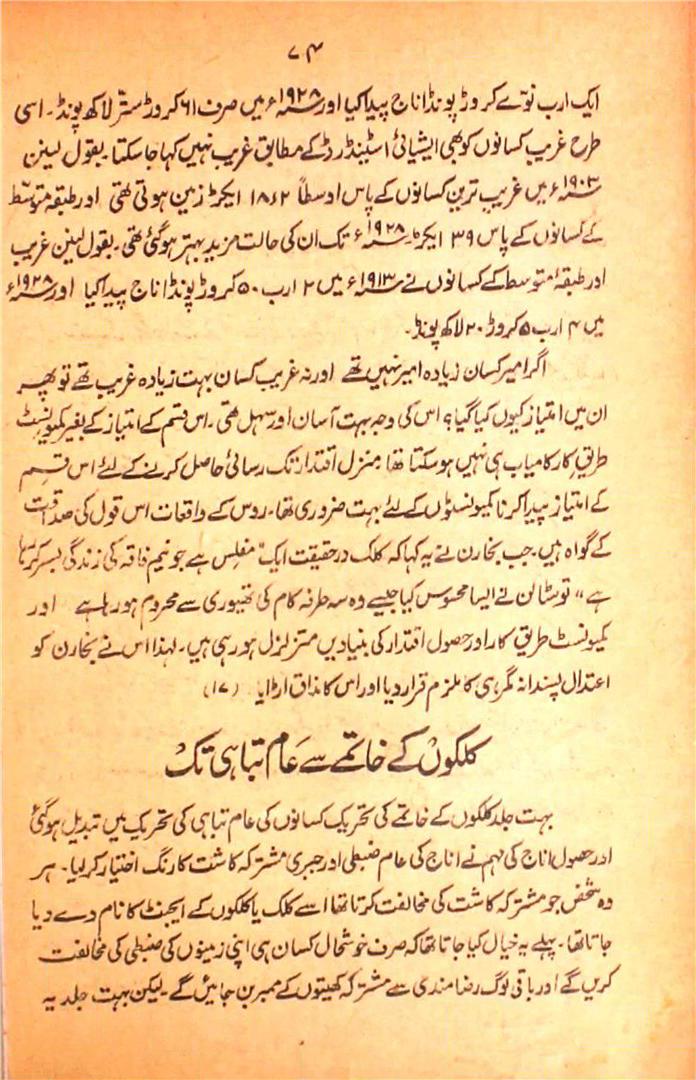 ۷۴
ایک ارب نوّے کروڑ پونڈ اناج پیدا کیا اور ۱۹۲۸ء میں صرف ۶۱ کروڑ ستّر لاکھ پونڈ۔ اسی
طرح غریب کسانوں کو بھی ایشیائی اسٹینڈرڈ کے مطابق غریب نہیں کہا جا سکتا۔ بقول لینن
۱۹۰۳ء میں غریب ترین کسانوں کے پاس اوسطاً ۱۸۶۲ ایکڑ زمین ہوتی تھی اور طبقہ متوسط
کے کسانوں کے پاس ۳۹ ایکڑ۔ ۱۹۲۸ء تک ان کی حالت مزید بہتر ہو گئی تھی۔ بقول لینن غریب
اور طبقۂ متوسط کے کسانوں نے ۱۹۱۳ء میں ۲ ارب ۵۰ کروڑ پونڈ اناج پیدا کیا اور ۱۹۲۸ء
میں ۴ ارب ۵ کروڑ ۲۰ لاکھ پونڈ۔
اگر امیر کسان زیادہ امیر نہیں تھے اور نہ غریب کسان بہت زیادہ غریب تھے تو پھر
ان میں امتیاز کیوں کیا گیا؟ اس کی وجہ بہت آسان اور سہل تھی۔ اس قسم کے امتیاز کے بغیر کمیونسٹ
طریق کار کامیاب ہی نہیں ہو سکتا تھا۔ منزل اقتدار تک رسائی حاصل کرنے کے لئے اس قسم
کے امتیاز پیدا کرنا کمیونسٹوں کے لئے بہت ضروری تھا۔ روس کے واقعات اس قول کی صداقت
کے گواہ ہیں۔ جب بخارن نے یہ کہا کہ کلک درحقیقت ایک "مفلس ہے جو نیم فاقہ کی زندگی بسر کرتا
ہے" تو سٹالن نے ایسا محسوس کیا جیسے وہ سہ طرفہ کام کی تھیوری سے محروم ہو رہا ہے اور
کمیونسٹ طریق کار اور حصول اقتدار کی بنیادیں متزلزل ہو رہی ہیں۔ لہذا اس نے بخارن کو
اعتدال پسندانہ گمرہی کا ملزم قرار دیا اور اس کا مذاق اڑایا۔ (۱۷)
کلکوں کے خاتمے سے عام تباہی تک
بہت جلد کلکوں کے خاتمے کی تحریک کسانوں کی عام تباہی کی تحریک میں تبدیل ہو گئی
اور حصول اناج کی مہم نے اناج کی عام ضبطی اور جبری مشترکہ کاشت کا رنگ اختیار کر لیا۔ ہر
وہ شخص جو مشترکہ کاشت کی مخالفت کرتا تھا اسے کلک یا کلکوں کے ایجنٹ کا نام دے دیا
جاتا تھا۔ پہلے یہ خیال کیا جاتا تھا کہ صرف خوشحال کسان ہی اپنی زمینوں کی ضبطی کی مخالفت
کریں گے اور باقی لوگ رضامندی سے مشترکہ کھیتوں کے ممبر بن جائیں گے۔ لیکن بہت جلد یہ